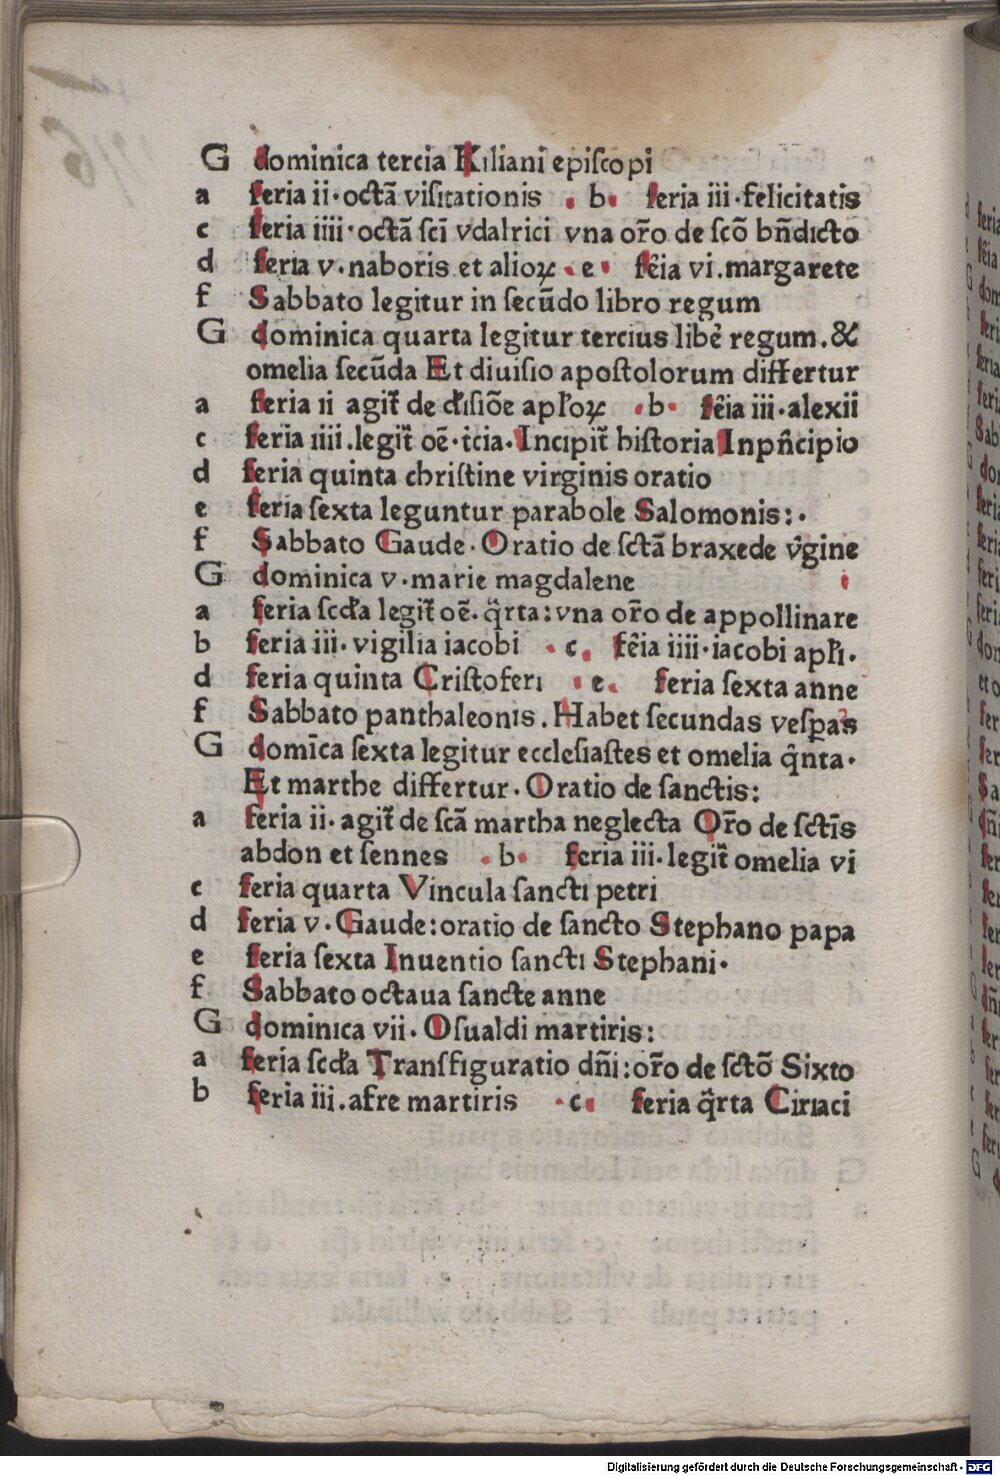 G dominica tercia Kiliani epiſcopi
a feria ii · octā viſitationis . b · feria iii · felicitatis
c feria iiii · octā ſci̅ vdalrici vna or̅o de ſco̅ bn̅dicto
d feria v . naboris et alioꝝ . e · fe̅ia vi . margarete
f Sabbato legitur in ſecūdo libro regum
G dominica quarta legitur tercius libe̅ regum . &
omelia ſecūda Et diuiſio apoſtolorum differtur
a feria ii agit̅ de di̅ſiōe apl̅oꝝ . b · fe̅ia iii · alexii
c feria iiii . legit̅ oē · t̅cia . Incipit̅ hiſtoria Inpn̅cipio
d feria quinta chriſtine virginis oratio
e feria ſexta leguntur parabole Salomonis : ·
f Sabbato Gaude · Oratio de ſctā braxede v̅gine
G dominica v . marie magdalene
a feria ſcd̅a legit̅ oē . q̅rta : vna or̅o de appollinare
b feria iii . vigilia iacobi . c . fe̅ia iiii · iacobi apl̅i .
d feria quinta Criſtoferi . e . feria ſexta anne
f Sabbato panthaleonis . Habet ſecundas veſꝑas
G domīca ſexta legitur eccleſiaſtes et omelia q̅nta .
Et marthe differtur . Oratio de ſanctis :
a feria ii . agit̅ de ſcā martha neglecta Or̅o de ſctīs
abdon et ſennes . b · feria iii . legit̅ omelia vi
c feria quarta Vincula ſancti petri
d feria v . Gaude : oratio de ſancto Stephano papa
e feria ſexta Inuentio ſancti Stephani .
f Sabbato octaua ſancte anne
G dominica vii . Oſualdi martiris :
a feria ſcd̅a Tranſfiguratio dn̅i : or̅o de ſctō Sixto
b feria iii . afre martiris . c . feria q̅rta Ciriaci
Digitalisierung gefördert durch die Deutsche Forschungsgemeinschaft - DFG